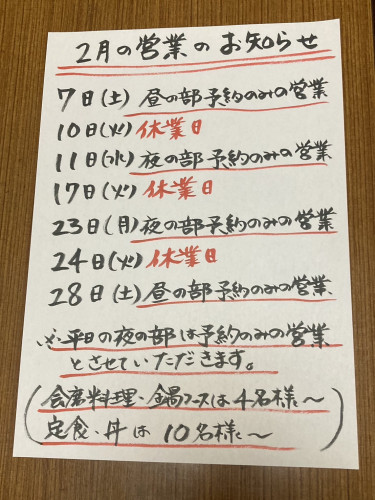 2月の営業のお知らせ
7日(土)昼の部予約のみの営業
10日(火)休業日
11日(水)夜の部予約のみの営業
17日(火)休業日
23日(月)夜の部予約のみの営業
24日(火)休業日
28日(土)昼の部予約のみの営業
※平日の夜の部は予約のみの営業
とさせていただきます。
(会席料理、鍋コースは4名様〜
定食、丼は10名様〜)